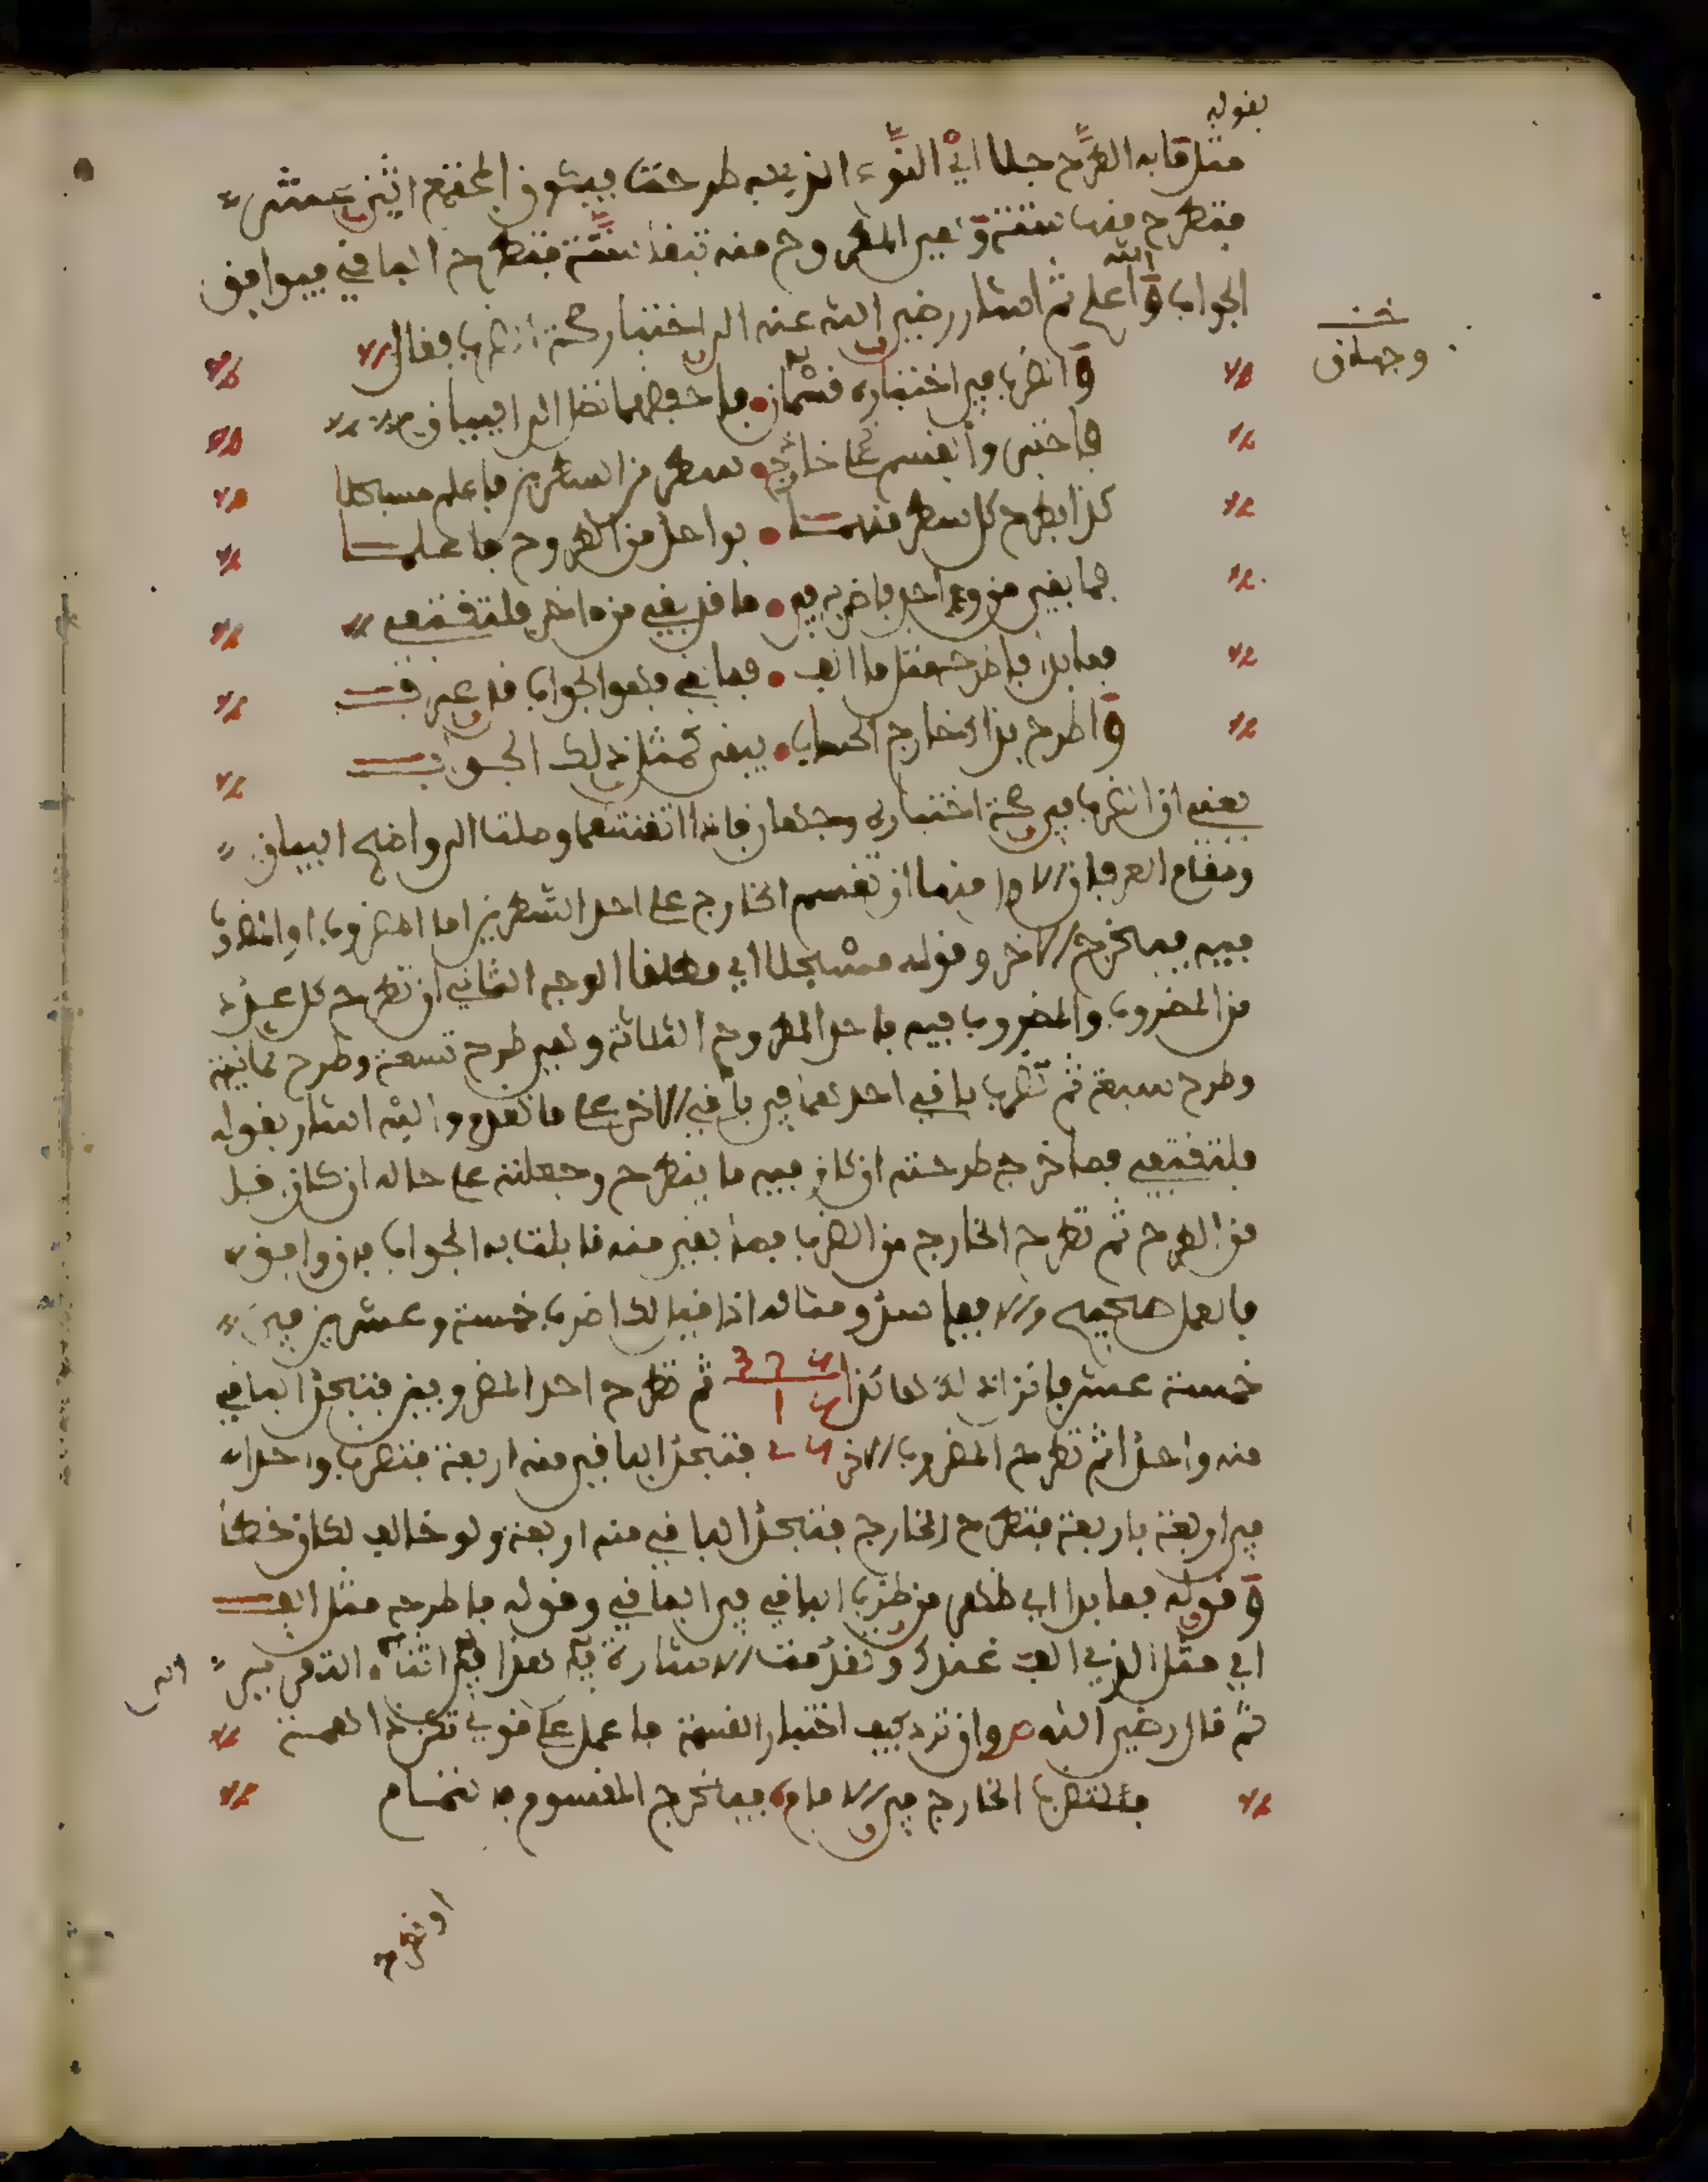 بقوله
مثل ما به الطرح جلا اي النوع الذي به طرحت فيكون المجتمع اثنى عشر
فتطرح منها ستة وهي المطروح منه تبقى ستة فتطرح الباقي فيوافق
الجواب والله اعلم ثم اشار رضي الله عنه الى اختبار صحة الضرب فقال
خـ وجهان
والضرب في اختباره قسمان فاحفظهما تصل الى البيان
فاختبر واقسم على خارجه سطر من السطرين فاعلم مسجلا
كذا بطرح كل سطر منهما بواحد من الطروح فاعلما
فما بقي من واحد فاضربه في ما قد بقي من اخر فلتقتفي
فما بدا فاطرحه مثل ما الف فما بقي فهو الجواب قد عرف
واطرح بذا لخارج الحساب يبقى كمثل ذلك الجواب
يعني ان الضرب في صحة اختباره وجهان فاذا اتقنتهما وصلت الى واضح البيان
ومقام العرفان الاول منهما ان تقسم الخارج على احد السطرين اما المضروب او المضروب
فيه فيخرج الاخر وقوله مسجلا اي مطلقا الوجه الثاني ان تطرح كل عدد
من المضروب والمضروب فيه باحد الطروح الثلاثة وهي طرح تسعة وطرح ثمانية
وطرح سبعة ثم تضرب باقي احدهما في باقي الاخر على ما تقدم واليه اشار بقوله
فلتقتفي فما خرج طرحته ان كان فيه ما ينطرح وجعلته على حاله ان كان قبل
من الطرح ثم تطرح الخارج من الضرب فما بقي منه قابلت به الجواب فان وافق
فالعمل صحيح والا ففاسد ومثاله اذا قيل لك اضرب خمسة وعشرين في
خمسة عشر فانزل ذلك هكذا ثم تطرح احد المضروبين فتجد الباقي
منه واحدا ثم تطرح المضروب الاخر فتجد الباقي منه اربعة فتضرب واحدا
في اربعة باربعة فتطرح الخارج فتجد الباقي منه اربعة ولو خالف لكان خطأ
وقوله فما بدا اي ظهر من ضرب الباقي في الباقي وقوله فاطرحه مثل الف
اي مثل الذي الف عندك وتقدمت الاشارة اليه هذا في اثناء التمر في
ثم قال رضي الله وان ترد كيف اختبار القسمة فاعمل على قولي تكن ذا همة
فلتضرب الخارج في الامام فيخرج المقسوم بالتمام
او تطرح